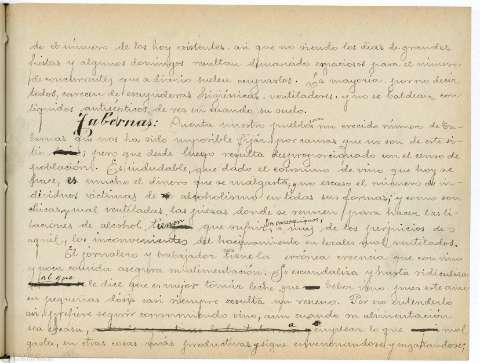 do el número de los hoy existentes. así que no siendo los días de grandes
fiestas y algunos domingos resultan demasiado espaciosos para el número
de concurrentes que a diario suelen ocuparlos. La mayoría, por no decir
todos, carecen de escupideras higiénicas, ventiladores, y no se baldean con
líquidos antisépticos, de vez en cuando su suelo.
Tabernas: Cuenta nuestro pueblo con un crecido número de ta-
bernas que nos ha sido imposible fijar por causas que no son de este si-
tio pero que desde luego resulta desproporcionado con el censo de
población. Es indudable, que dado el consumo de vino que hoy se
hace, es mucho el dinero que se malgasta, no escaso el número de in-
dividuos víctimas de alcoholismo en todas sus formas; y como son
chicas, y mal ventiladas, las piezas donde se reunen para hacer las li-
baciones de alcohol, tienen que sufrir, a más de los perjuicios de
aquél, los inconvenientes del hacinamiento en locales mal ventilados.
El jornalero y trabajador tiene la errónea creencia que con vino
y poca comida asegura su alimentación. Se escandaliza y hasta ridiculiza
al que le dice que es mejor tomar leche que beber vino, pues este aún
en pequeñas dosis casi siempre resulta un veneno. Por no entenderlo
así, prefiere seguir consumiendo vino, aún cuando su alimentación
sea escasa, a emplear lo que mal
gasta, en otras cosas más productivas y sigue envenenándose y engañándose,